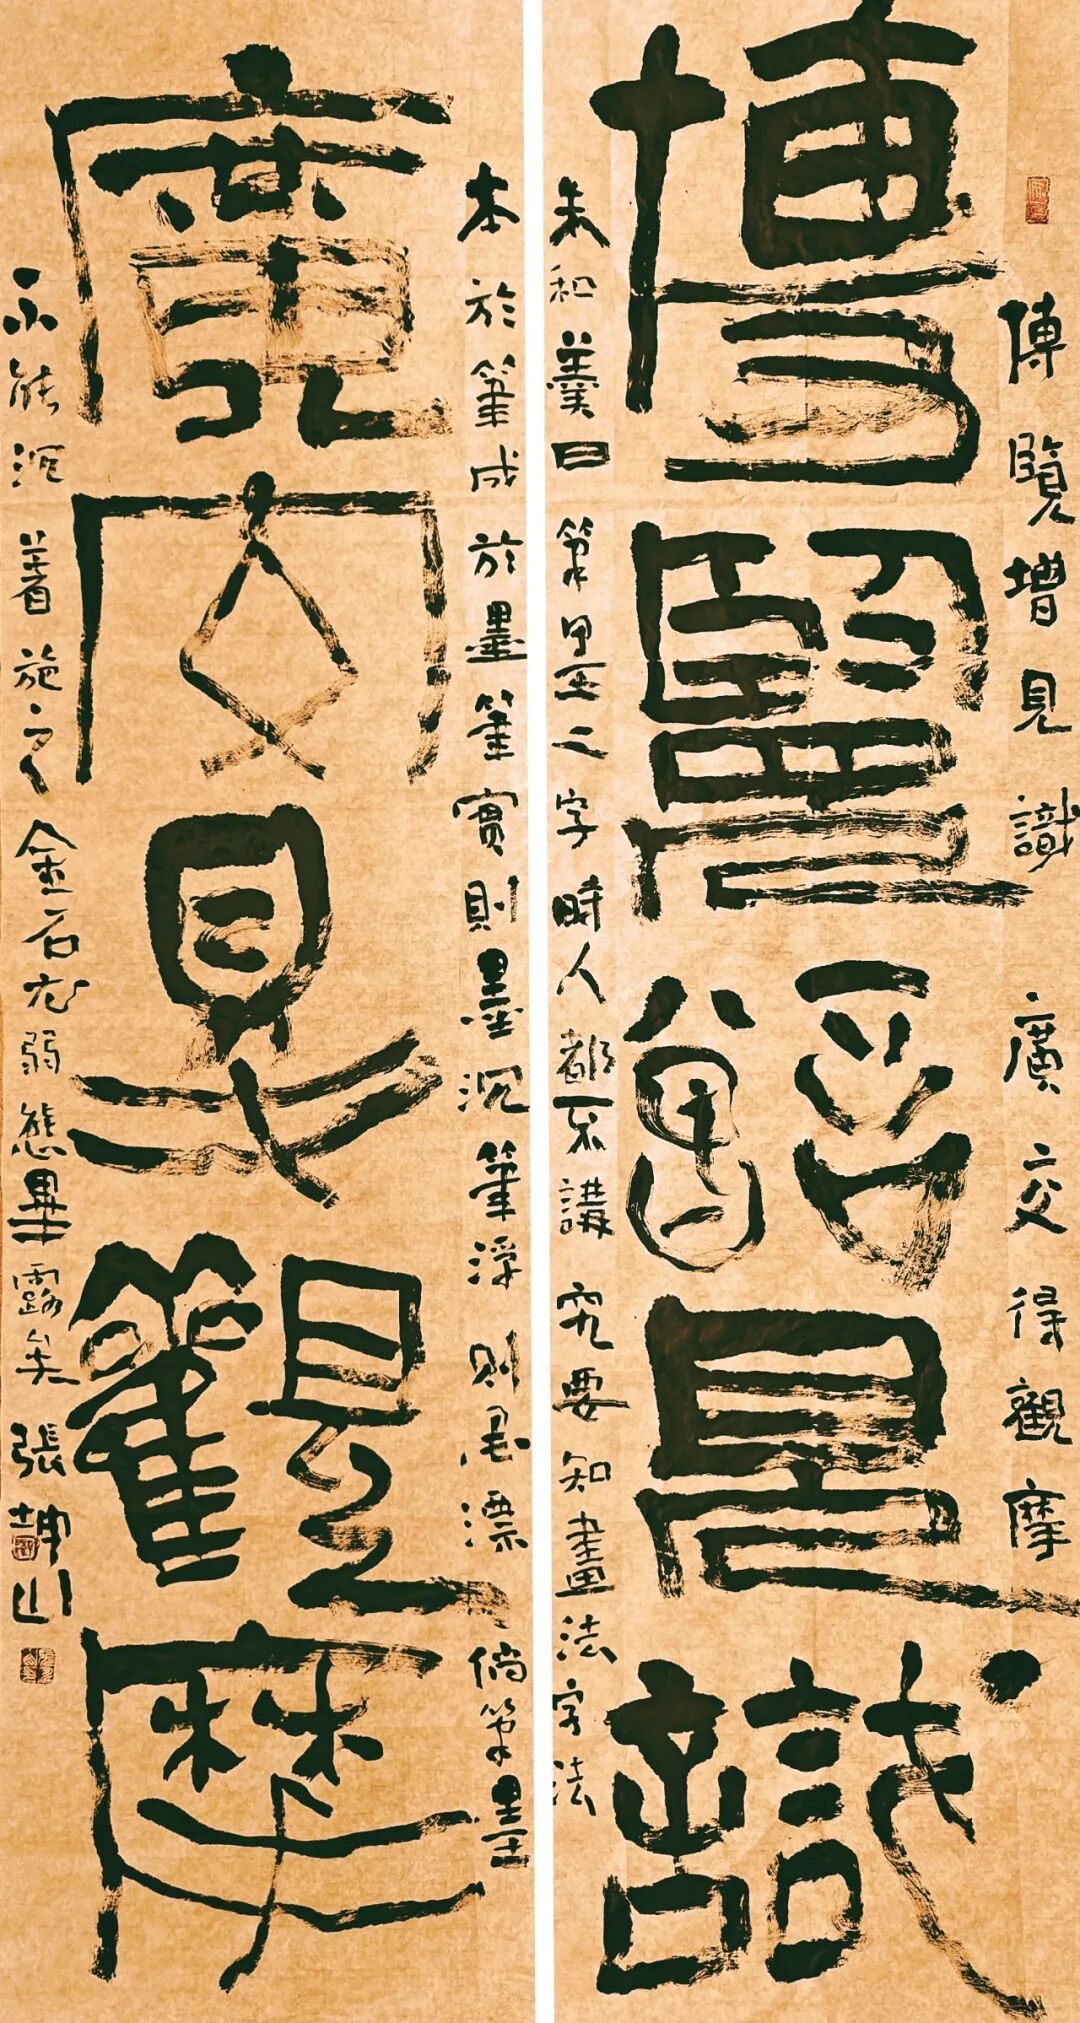 博覽增見識 廣交得觀摩
博覽增見識
朱和羹曰筆墨二字時人都不講究要知畫法字法
本於筆成於墨筆實則墨沉筆浮則墨漂倘筆墨
廣交得觀摩
不能沉著施之金石尤弱態畢露矣張坤山